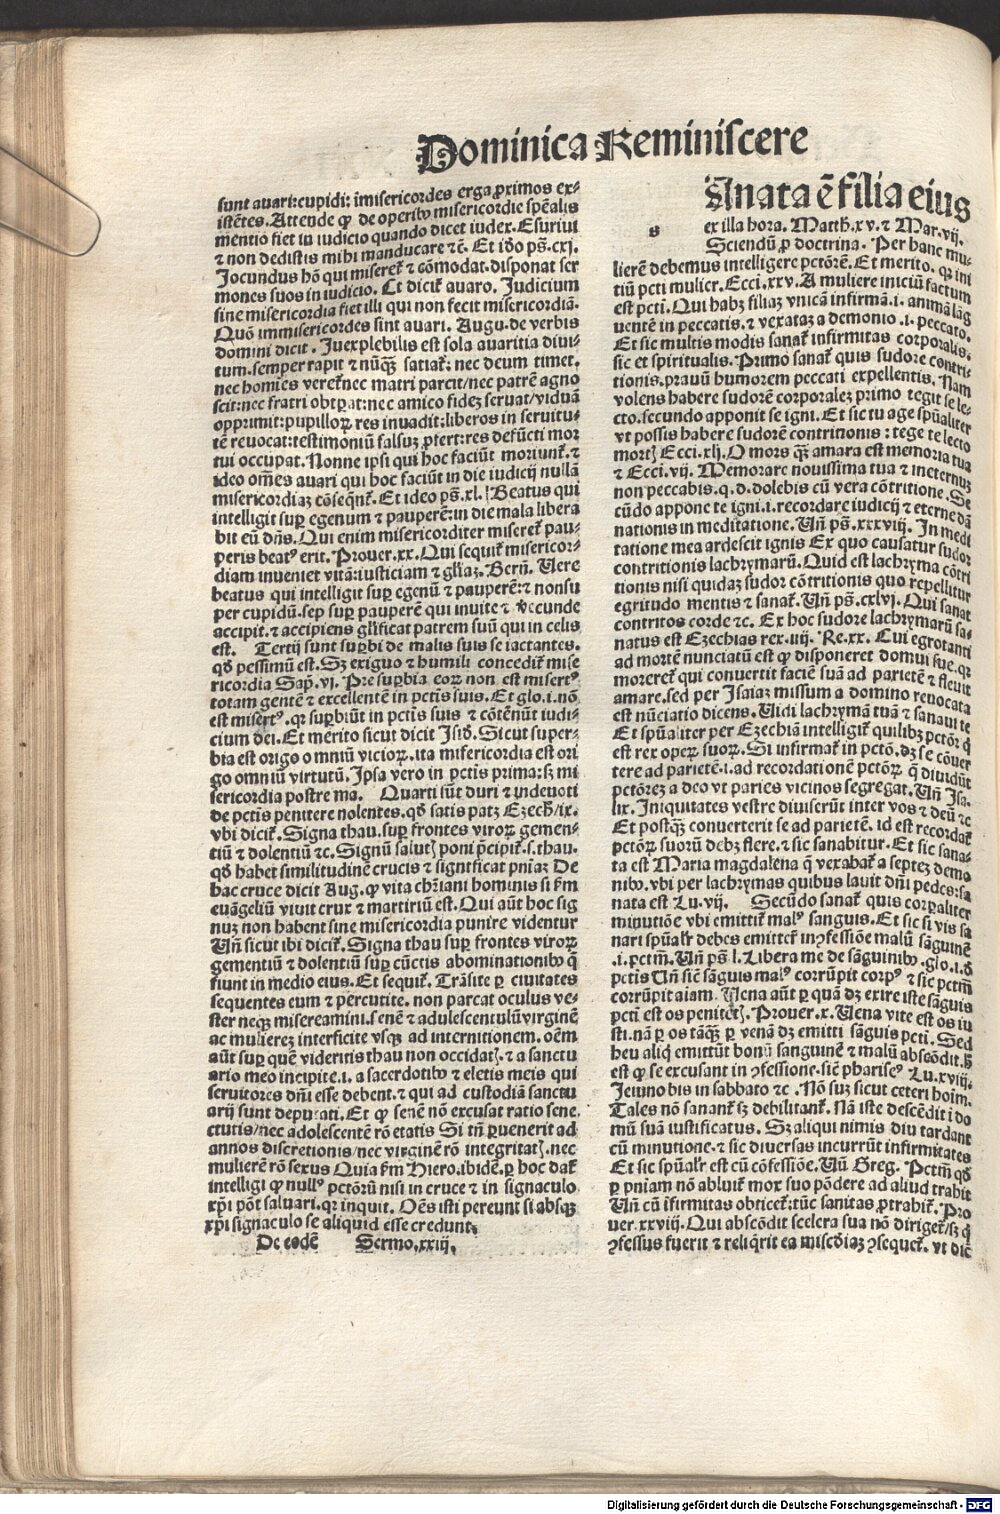 Dominica Reminiscere
sunt auari: cupidi: īmisericordes erga ꝓximos ex⸗
istētes. Attende ꝙ de operibꝰ misericordie spēalis
mentio fiet in iudicio quando dicet iudex. Esuriui
⁊ non dedistis mihi manducare ⁊c̄. Et iđo pš. cxj.
Jocundus hō qui miseret̄ ⁊ cōmodat. disponat ser
mones suos in iudicio. Et dicit̄ auaro. Judicium
sine misericordia fiet illi qui non fecit misericordiā.
Quō immisericordes sint auari. Augu. de verbis
domini dicit. Inexplebilis est sola auaritia diui⸗
tum. semper rapit ⁊ nūqꝫ̄ satiat̄: nec deum timet.
nec homīes veret̄ nec matri parcit/ nec patrē agno
scit: nec fratri obtꝑat: nec amico fideꝫ seruat/ viduā
opprimit: pupilloꝝ res inuadit: liberos in seruitu⸗
tē reuocat: testimoniū falsuꝫ ꝓfert: res defūcti mor
tui occupat. Nonne ipsi qui hoc faciūt moriunt̄. ⁊
ideo om̄es auari qui hoc faciūt in die iudicij nullā
misericordiaꝫ cōseqn̄t̄. Et ideo pš. xl. Beatus qui
intelligit suꝑ egenum ⁊ pauperē: in die mala libera
bit eū dn̄s. Qui enim misericorditer miseret̄ pau⸗
peris beatꝰ erit. Prouer. xx. Qui sequit̄ misericor⸗
diam inueniet vitā: iusticiam ⁊ gl̄iaꝫ. Bern̄. Uere
beatus qui intelligit suꝑ egenū ⁊ pauperē: ⁊ non su
per cupidū. seꝑ suꝑ pauperē qui inuite ⁊ v̄ecunde
accipit. ⁊ accipiens gl̄ificat patrem suū qui in celis
est. Tertij sunt suꝑbi de malis suis se iactantes.
qđ pessimū est. Sꝫ exiguo ⁊ humili concedit̄ mise
ricordia Sap̄. vj. Pre suꝑbia eoꝝ non est misertꝰ
totam gentē ⁊ excellentē in pctīs suis. Et glo. i. nō
est misertꝰ. qꝛ suꝑbiūt in pctīs suis ⁊ cōtēnūt iudi⸗
cium dei. Et merito sicut dicit Isiđ. Sicut super⸗
bia est origo omniū vicioꝝ. ita misericordia est ori
go omniū virtutū. Ipsa vero in pctīs prima: sꝫ mi
sericordia postrema. Quarti sūt duri ⁊ indeuoti
de pctīs penitere nolentes. qđ satis patꝫ Ezech̄/ ix.
vbi dicit̄. Signa thau. suꝑ frontes viroꝝ gemen⸗
tiū ⁊ dolentiū ⁊c. Signū salutꝭ poni p̄cipit̄. s. thau.
qđ habet similitudinē crucis ⁊ significat pn̄iaꝫ De
hac cruce dicit Aug. ꝙ vita chr̄iani hominis si fm̄
euāgeliū viuit crux ⁊ martiriū est. Qui aūt hoc sig
nuꝫ non habent sine misericordia punire videntur
Un̄ sicut ibi dicit̄. Signa thau suꝑ frontes viroꝝ
gementiū ⁊ dolentiū suꝑ cūctis abominationibꝰ q̄
fiunt in medio eius. Et sequit̄. Trāsite ꝑ ciuitates
sequentes eum ⁊ percutite. non parcat oculus ve⸗
ster neqꝫ misereamini. senē ⁊ adulescentulū virginē
ac muliereꝫ interficite vsqꝫ ad internitionem. oēm
aūt suꝑ quē videritis thau non occidatꝭ. ⁊ a sanctu
ario meo incipite. i. a sacerdotibꝰ ⁊ eletis meis qui
seruitores dn̄i esse debent. ⁊ qui ad custodiā sanctu
arij sunt deputati. Et ꝙ senē nō excusat ratio sene
ctutis/ nec adolescentē rō etatis Si tn̄ ꝑuenerit ad
annos discretionis/ nec virginē rō integritatꝭ. nec
mulierē rō sexus Quia fm̄ Hiero. ibidē. ꝑ hoc dat̄
intelligi ꝙ nullꝰ pctōrū nisi in cruce ⁊ in signaculo
xp̄i pōt saluari. qꝛ inquit. Oēs isti pereunt si absqꝫ
xp̄i signaculo se aliquid esse credunt.
De eodē Sermo. xxiij.
Sanata ē filia eius
s ex illa hora. Matth. xv. ⁊ Mar. vij.
Sciendū ꝓ doctrina. Per hanc mu⸗
lierē debemus intelligere pctōrē. Et merito. qꝛ ini
tiū pcti mulier. Ecci. xxv. A muliere iniciū factum
est pcti. Qui habꝫ filiaꝫ vnicā infirmā. i. animā lāg
uentē in peccatis. ⁊ vexataꝫ a demonio. i. peccato.
Et sic multis modis sanat̄ infirmitas corporalis.
sic et spiritualis. Primo sanat̄ quis sudore contri⸗
tionis. prauū humorem peccati expellentis. Nam
volens habere sudorē corporaleꝫ primo tegit se le⸗
cto. secundo apponit se igni. Et sic tu age spūaliter
vt possis habere sudorē contritionis: tege te lecto
mortꝭ Ecci. xlj. O mors qꝫ̄ amara est memoria tua
⁊ Ecci. vij. Memorare nouissima tua ⁊ ineternuꝫ
non peccabis. q. d. dolebis cū vera cōtritione. Se
cūdo appone te igni. i. recordare iudicij ⁊ eterne dā
nationis in meditatione. Un̄ pš. xxxviij. In medi
tatione mea ardescit ignis Ex quo causatur sudor
contritionis lachrymarū. Quid est lachryma cōtri
tionis nisi quidaꝫ sudor cōtritionis quo repellitur
egritudo mentis ⁊ sanat̄. Un̄ pš. cxlvj. Qui sanat
contritos corde ⁊c. Ex hoc sudore lachrymarū sa⸗
natus est Ezechias rex. iiij. Re. xx. Cui egrotanti
ad mortē nunciatū est ꝙ disponeret domui sue. qꝛ
moreret̄ qui conuertit faciē suā ad parietē ⁊ fleuit
amare. sed per Isaiaꝫ missum a domino reuocata
est nūciatio dicens. Uidi lachrymā tuā ⁊ sanaui te
Et spūaliter per Ezechiā intelligit̄ quilibꝫ pctōr q̄
est rex operꝝ suoꝝ. Si infirmat̄ in pctō. dꝫ se cōuer
tere ad parietē. i. ad recordationē pctōꝝ q̄ diuidūt
pctōreꝫ a deo vt paries vicinos segregat. Un̄ Isa.
lix. Iniquitates vestre diuiserūt inter vos ⁊ deū ⁊c
Et postqꝫ̄ conuerterit se ad parietē. id est recordat̄
pctōꝝ suorū debꝫ flere. ⁊ sic sanabitur. Et sic sana⸗
ta est Maria magdalena q̄ vexabat̄ a septeꝫ demo
nibꝰ. vbi per lachrymas quibus lauit dn̄i pedes: sa
nata est Lu. vij. Secūdo sanat̄ quis corꝑaliter
minutiōe vbi emittit̄ malꝰ sanguis. Et sic si vis sa
nari spūalr̄ debes emittere in ꝯfessiōe malū sāguinē
.i. pctm̄. Un̄ pš l. Libera me de sāguinibꝰ. glo. i. đ
pctīs Un̄ sic̄ sāguis malꝰ corrūpit corpꝰ ⁊ sic pctm̄
corrūpit aīam. Uena aūt ꝑ quā dꝫ exire iste sāguis
pcti est os penitētꝭ. Prouer. x. Uena vite est os iu
sti. nā ꝑ os tāqꝫ̄ ꝑ venā dꝫ emitti sāguis pcti. Sed
heu aliq̄ emittūt bonū sanguinē ⁊ malū abscōdit. h̄
est ꝙ se excusant in ꝯfessione. sic̄ phariseꝰ Lu. xviij.
Jeiuno bis in sabbato ⁊c. Nō suꝫ sicut ceteri hoīm.
Tales nō sanant̄ sꝫ debilitant̄. Nā iste descēdit i do
mū suā iustificatus. Sꝫ aliqui nimis diu tardant
cū minutione. ⁊ sic diuersas incurrūt infirmitates
Et sic spūalr̄ est cū cōfessiōe. Un̄ Greg. Pctm̄ qđ
ꝑ pniam nō abluit̄ mox suo pōdere ad aliud trahit
Un̄ cū īfirmitas obticet̄: tūc sanitas ꝓtrahit̄. Pro
uer. xxviij. Qui abscōdit scelera sua nō diriget̄/ sꝫ q̄
ꝯfessus fuerit ⁊ reliq̄rit ea misc̄điaꝫ ꝯsequet̄. vt dic̄
Digitalisierung gefördert durch die Deutsche Forschungsgemeinschaft - DFG